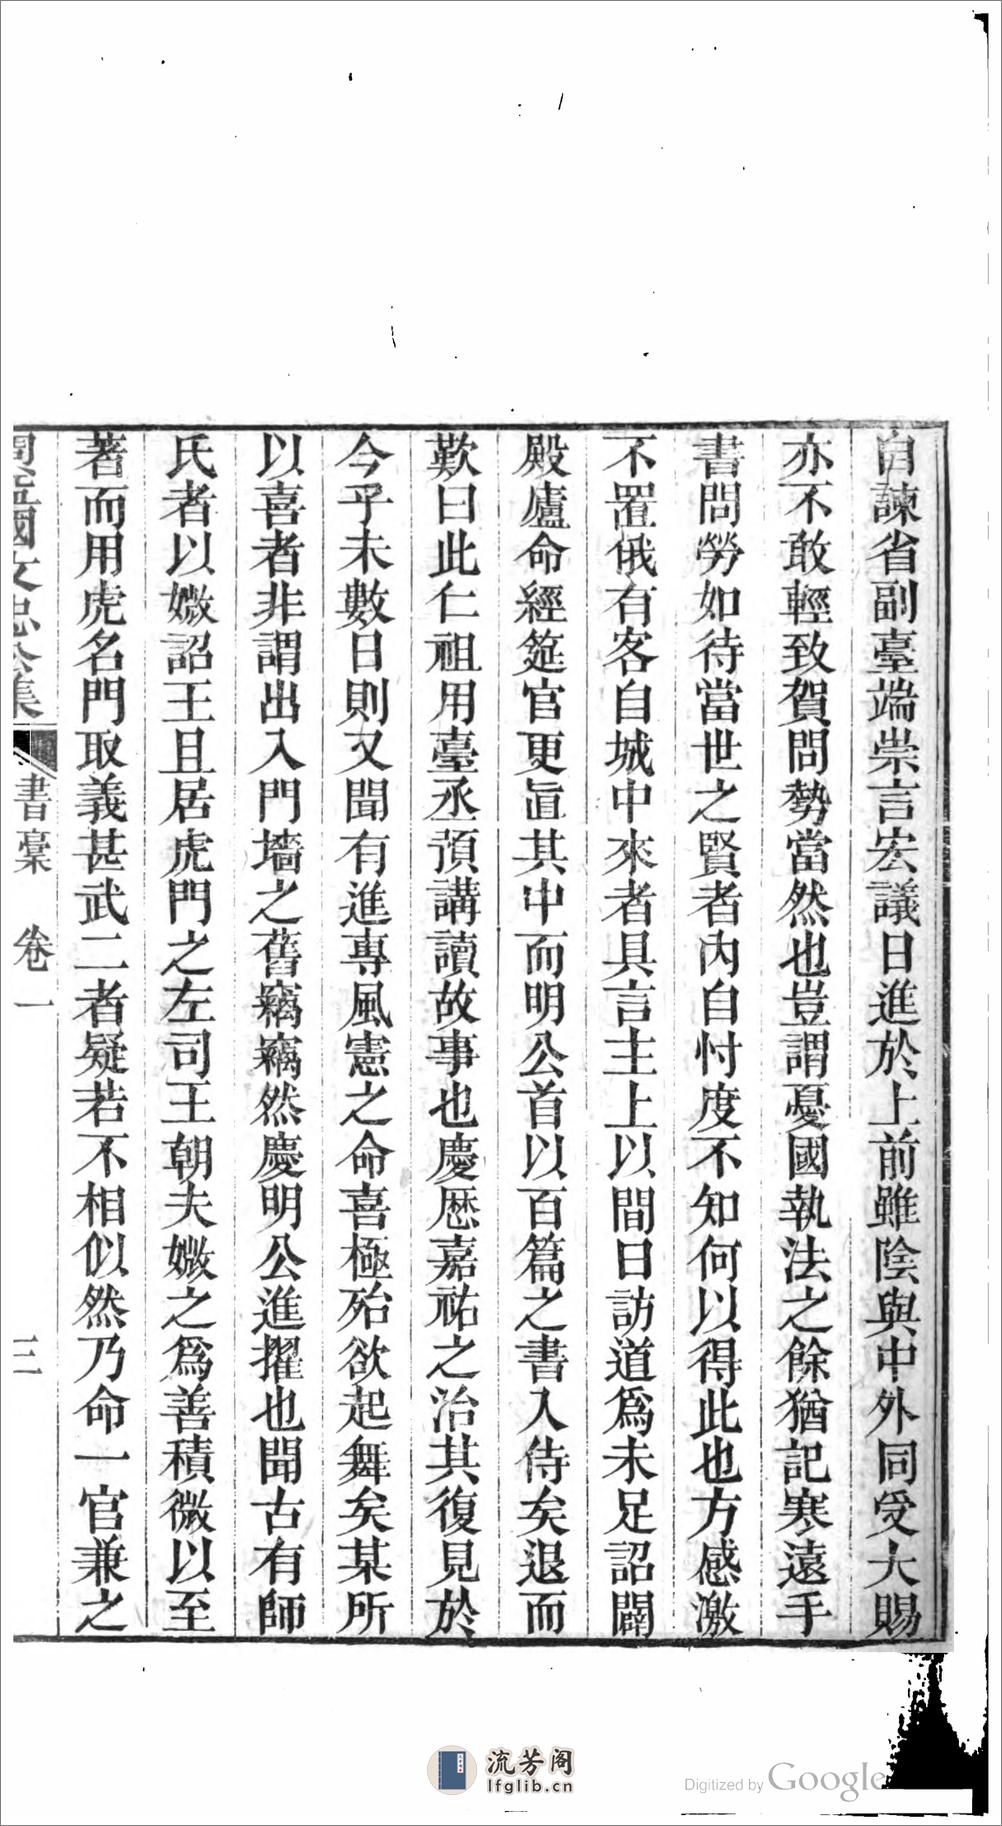 自諫省副臺端崇言宏議日進於上前雖陰與中外同受大賜
亦不敢輕致賀問勢當然也豈謂憂國執法之餘猶記寒遠手
書問勞如待當世之賢者內自忖度不知何以得此也方感激
不置俄有客自城中來者具言主上以間日訪道爲未足詔闢
殿廬命經筵官更直其中而明公首以百篇之書入侍矣退而
歎曰此仁祖用臺丞預講讀故事也慶歷嘉祐之治其復見於
今乎未數日則又聞有進專風憲之命喜極殆欲起舞矣某所
以喜者非謂出入門墻之舊竊竊然慶明公進擢也聞古有師
氏者以媺詔王且居虎門之左司王朝夫媺之爲善積微以至
著而用虎名門取義甚武二者疑若不相似然乃命一官兼之
周益國文忠公集 書稾 卷一 三
流芳阁
lfglib.cn
Digitized by Google